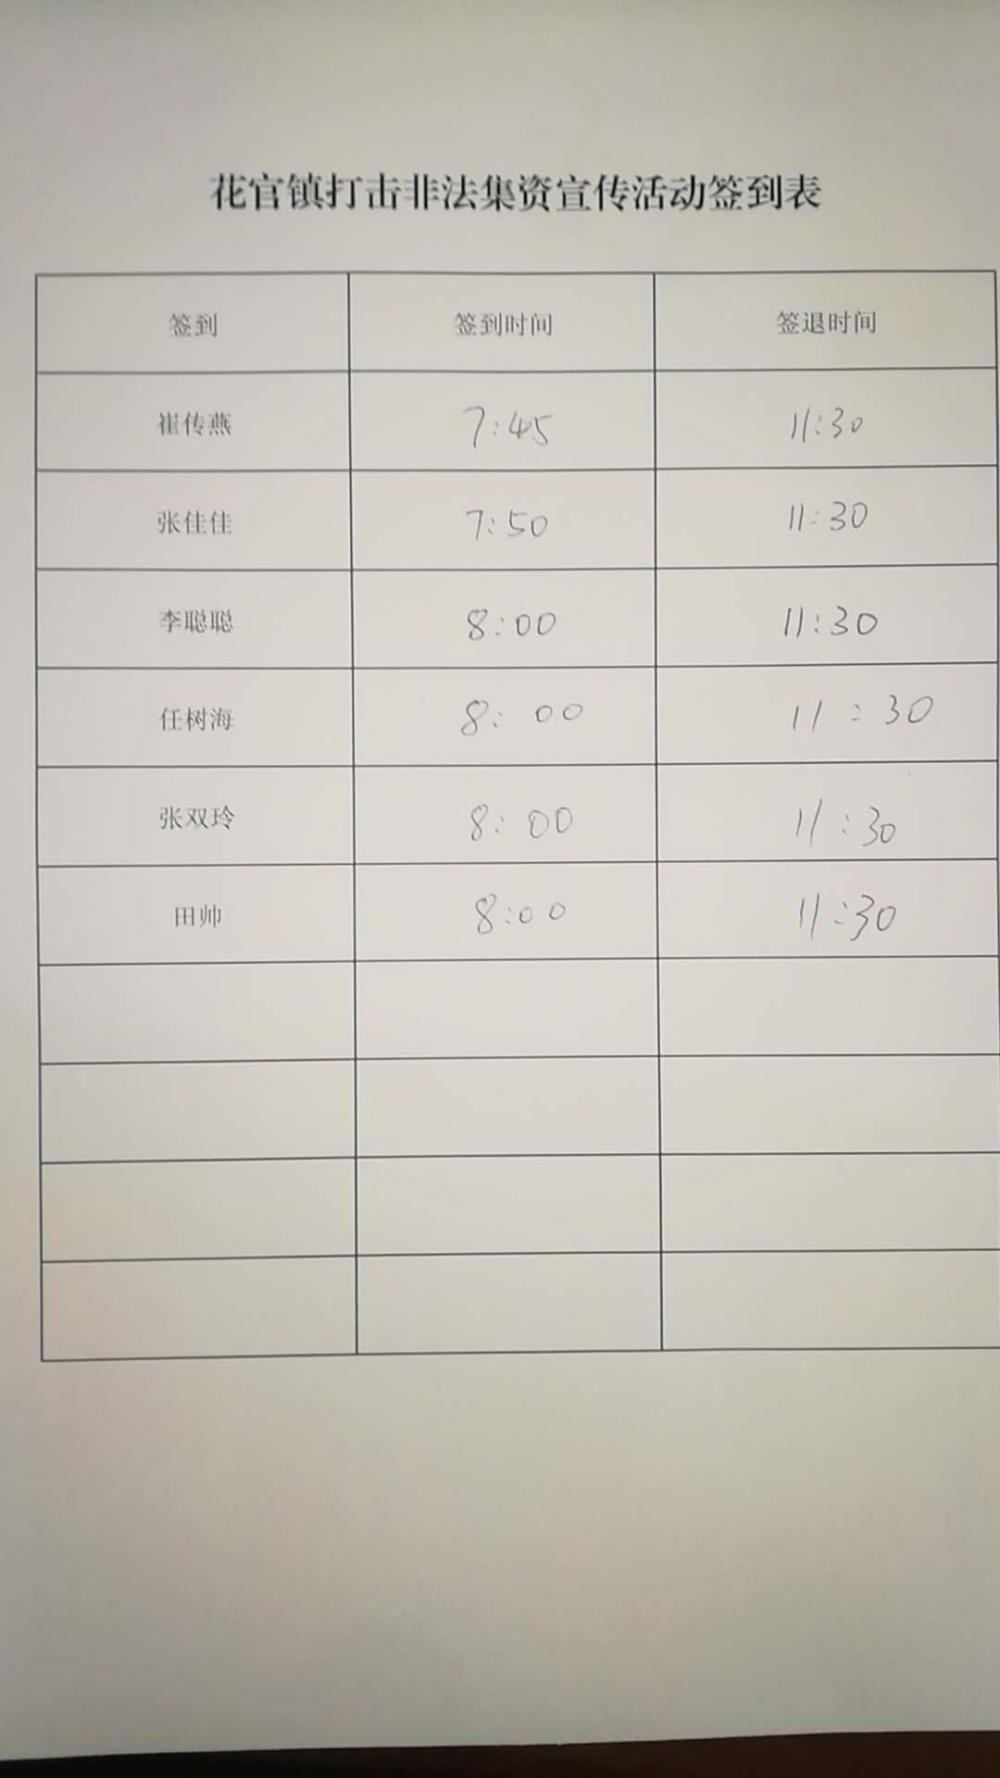 花官镇打击非法集资宣传活动签到表
签到 签到时间 签退时间
崔传燕 7:45 11:30
张佳佳 7:50 11:30
李聪聪 8:00 11:30
任树海 8:00 11:30
张双玲 8:00 11:30
田帅 8:00 11:30